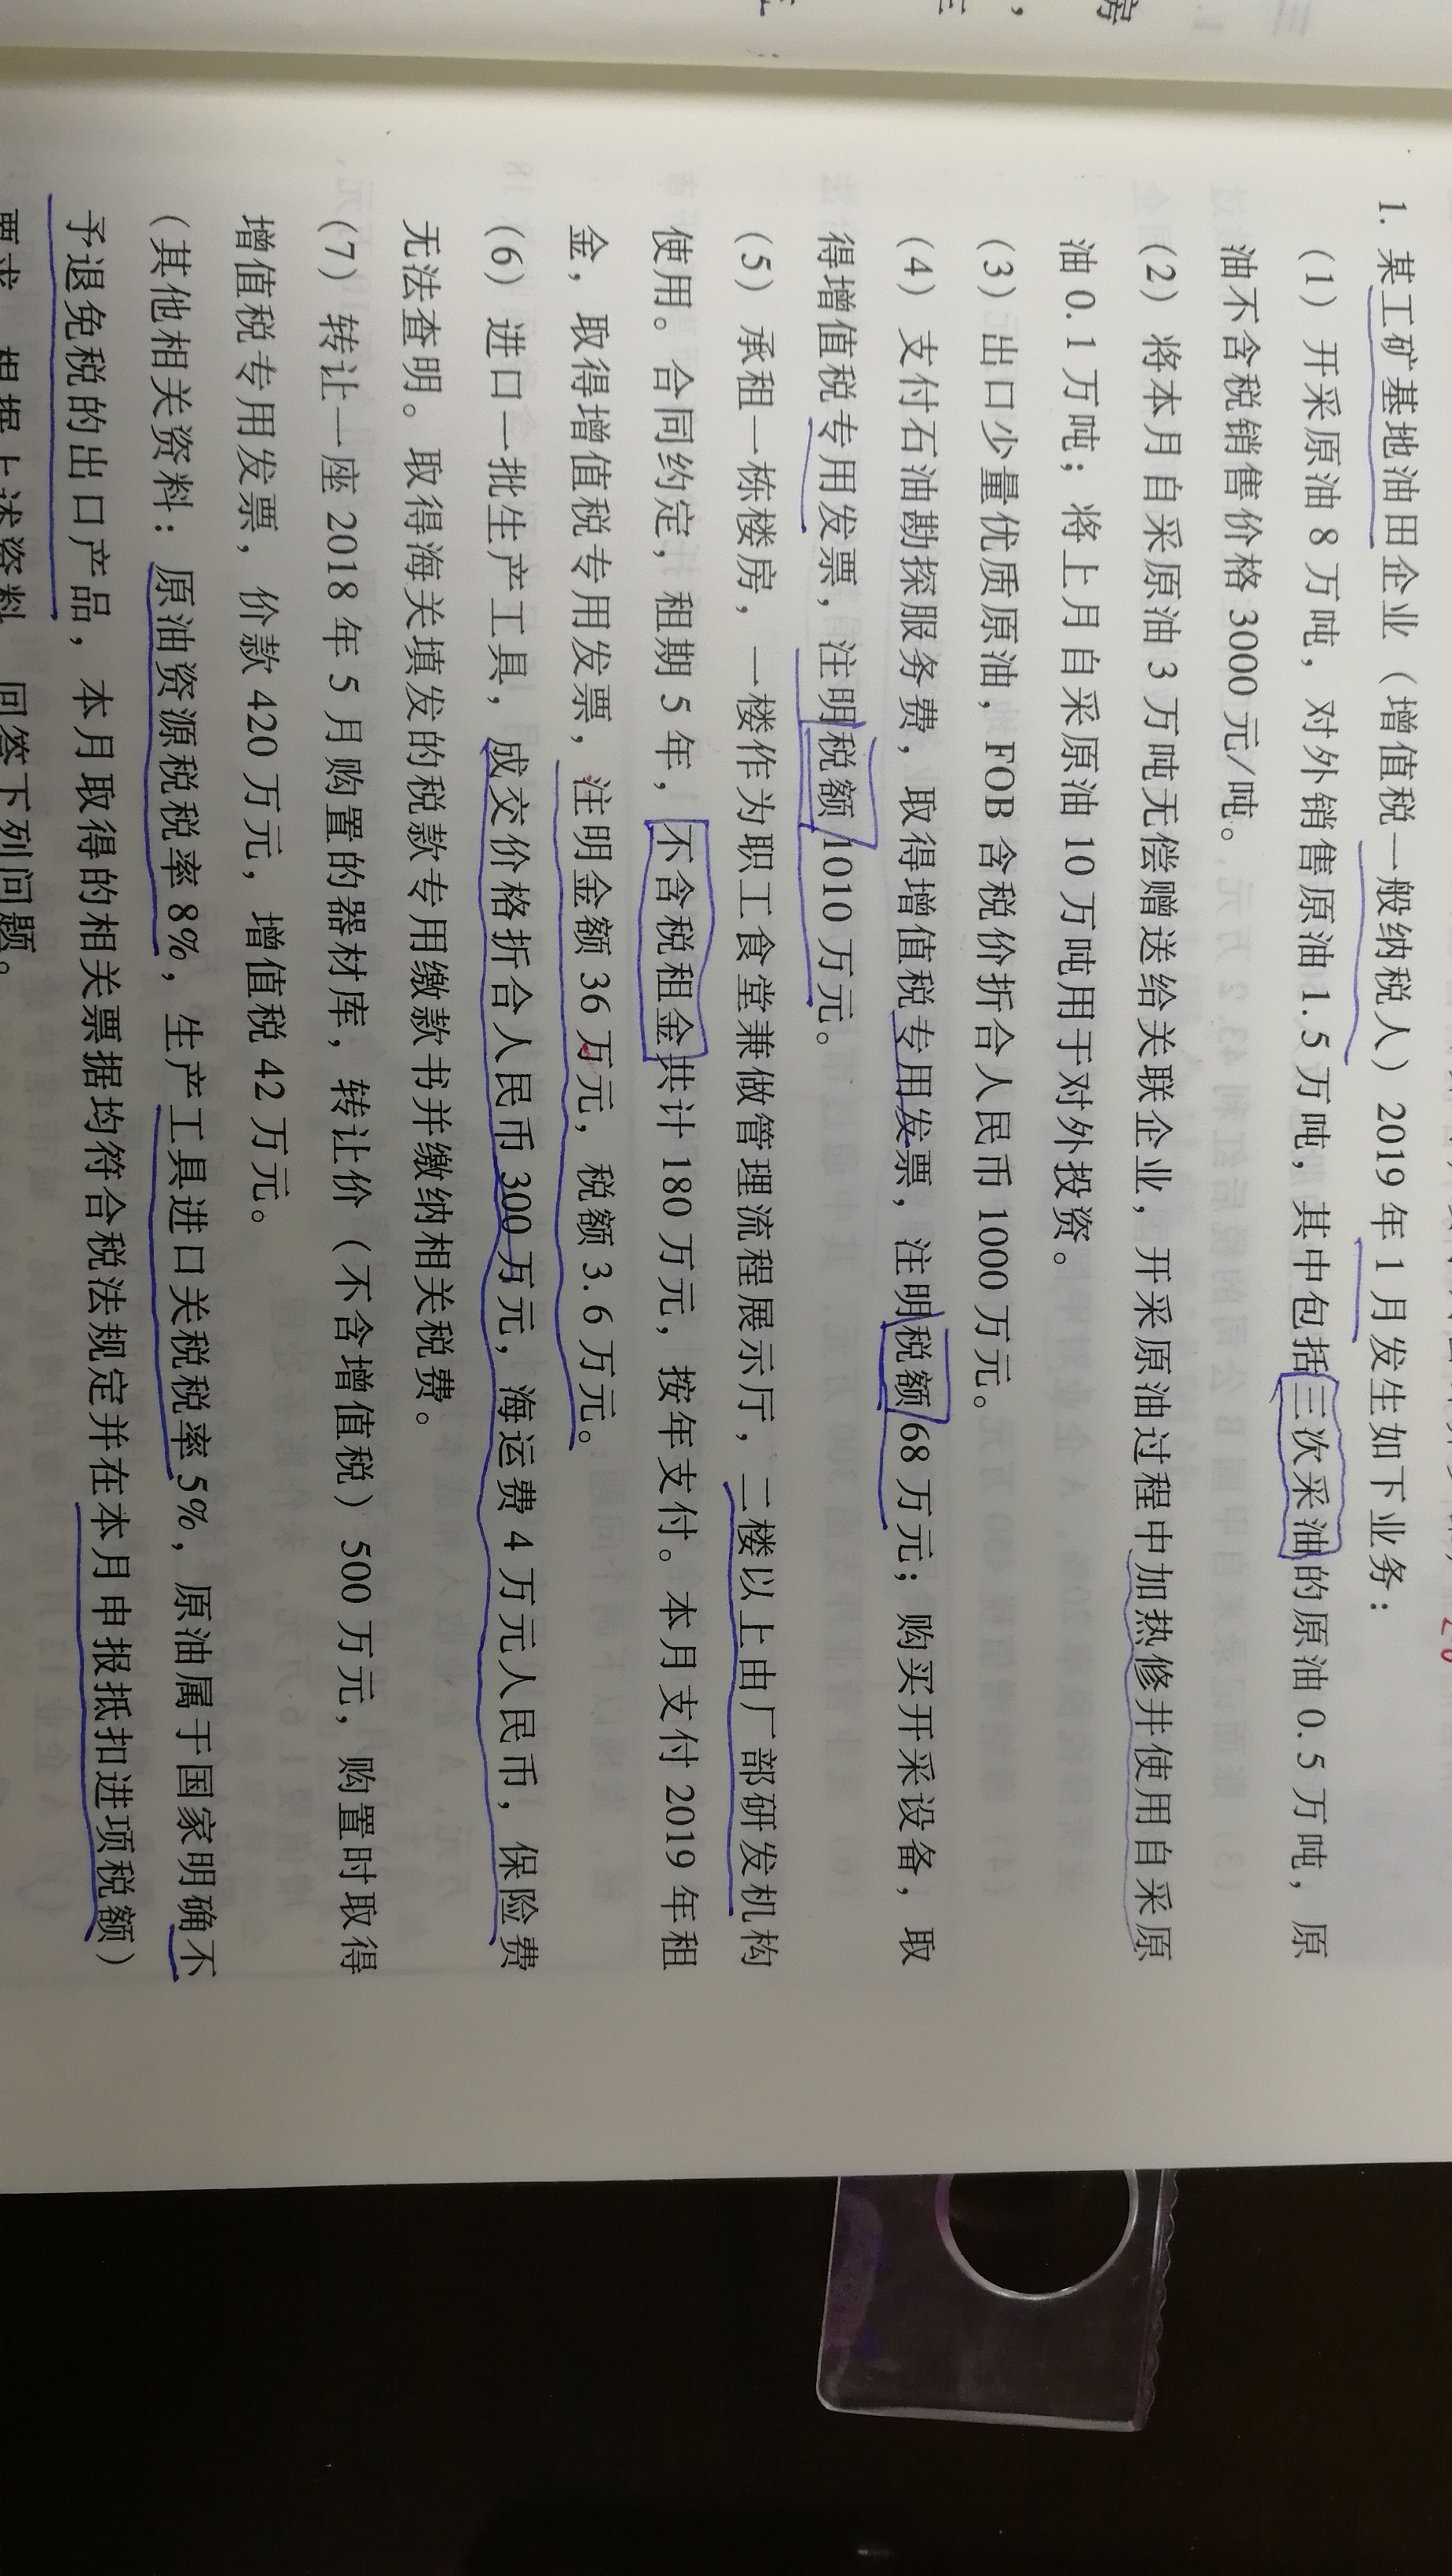 1. 某工矿基地油田企业（增值税一般纳税人）2019 年 1 月发生如下业务：
（1）开采原油 8 万吨，对外销售原油 1.5 万吨，其中包括三次采油的原油 0.5 万吨，原
油不含税销售价格 3000 元/吨。
（2）将本月自采原油 3 万吨无偿赠送给关联企业，开采原油过程中加热修井使用自采原
油 0.1 万吨；将上月自采原油 10 万吨用于对外投资。
（3）出口少量优质原油，FOB 含税价折合人民币 1000 万元。
（4）支付石油勘探服务费，取得增值税专用发票，注明税额 68 万元；购买开采设备，取
得增值税专用发票，注明税额 1010 万元。
（5）承租一栋楼房，一楼作为职工食堂兼做管理流程展示厅，二楼以上由厂部研发机构
使用。合同约定，租期 5 年，不含税租金共计 180 万元，按年支付。本月支付 2019 年租
金，取得增值税专用发票，注明金额 36 万元，税额 3.6 万元。
（6）进口一批生产工具，成交价格折合人民币 300 万元，海运费 4 万元人民币，保险费
无法查明。取得海关填发的税款专用缴款书并缴纳相关税费。
（7）转让一座 2018 年 5 月购置的器材库，转让价（不含增值税）500 万元，购置时取得
增值税专用发票，价款 420 万元，增值税 42 万元。
（其他相关资料：原油资源税税率 8%，生产工具进口关税税率 5%，原油属于国家明确不
予退免税的出口产品，本月取得的相关票据均符合税法规定并在本月申报抵扣进项税额）
要求：根据上述资料，回答下列问题。